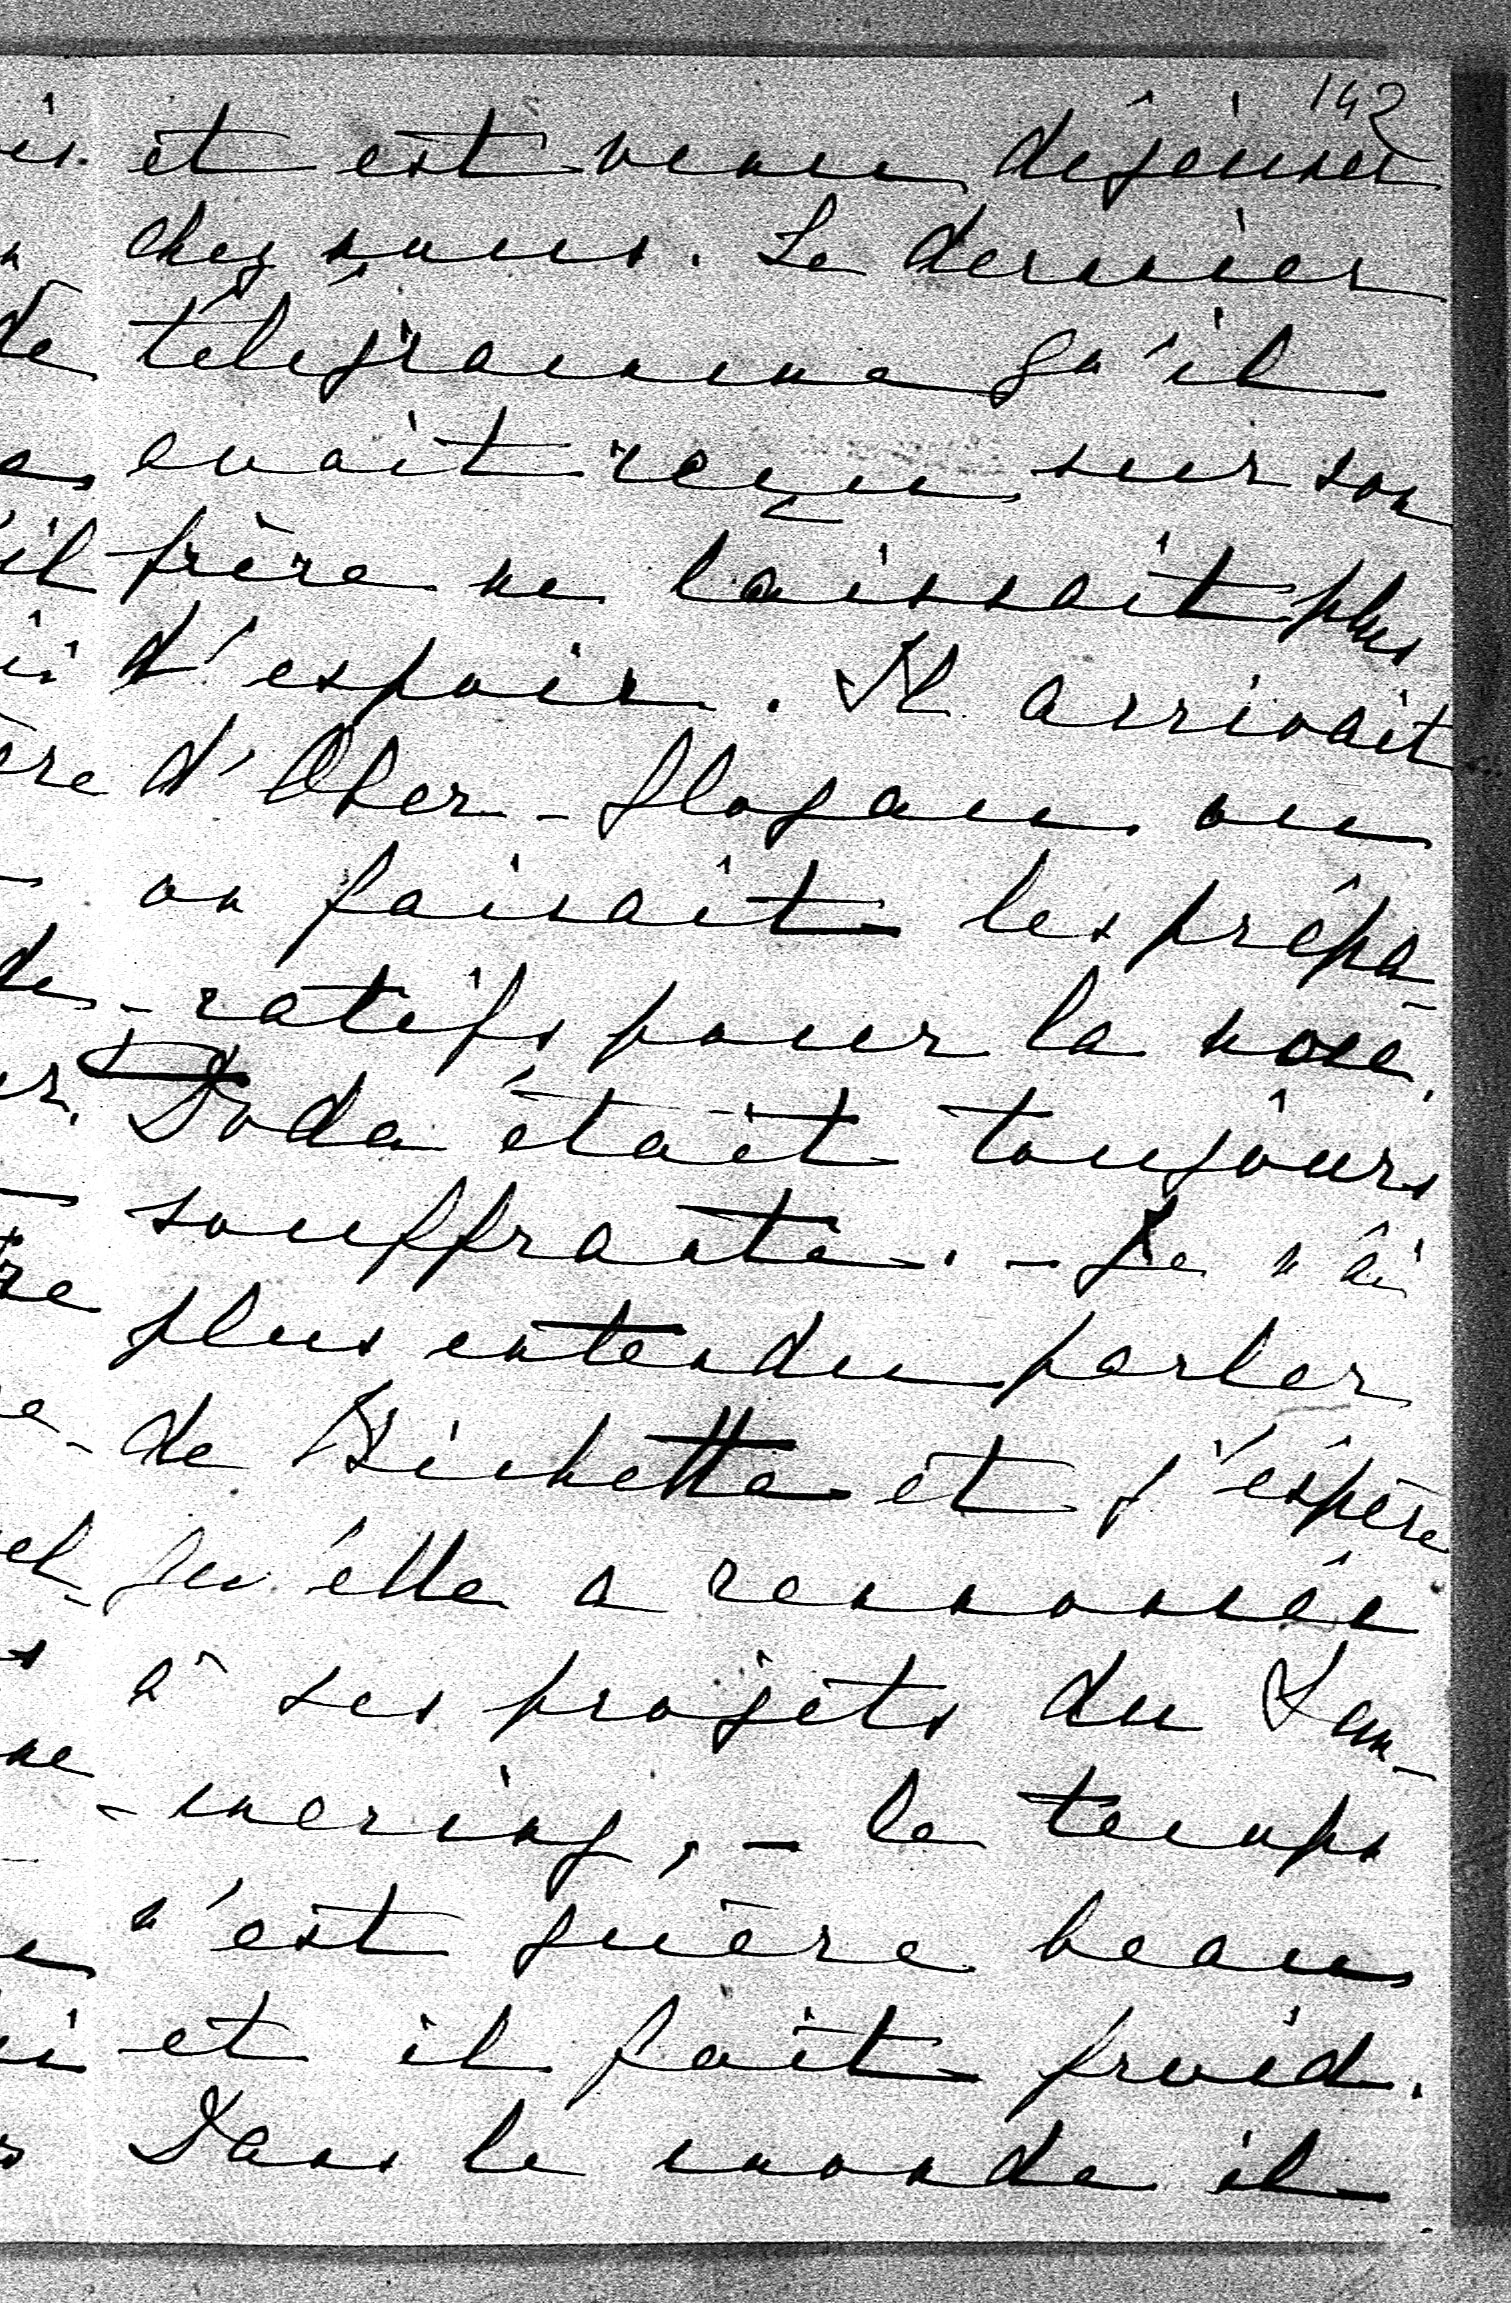 142
et est venu déjeuner
chez nous. Le dernier
télégramme qu'il
avait reçu sur son
frère ne laissait plus
d'espoir. Il arrivait
d'Ober-Glogau, ou
on faisait les prépa-
-ratifs pour la noce.
Doda était toujours
souffrante. - Je n'ai
plus entendu parler
de Bichette et j'espère
qu'elle a renoncée
à ses projets du Sem-
-mering, - le temps
n'est guère beau
et il fait froid.
Dans le monde il